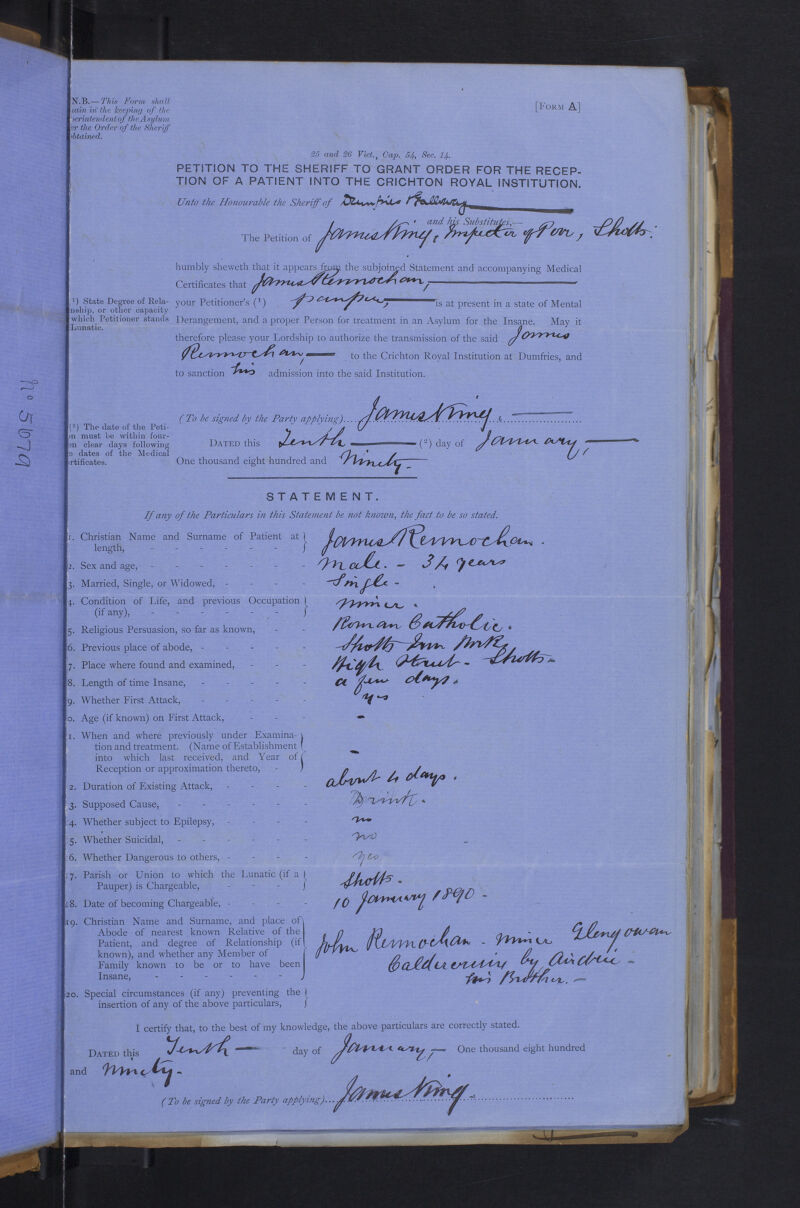 N.B.—This Form shall
ain in the keeping of the
erintendent of the Asylum
er the Order of the Sheriff
btained.
[Form A]
25 and 26 Vict., Cap. 54, Sec. 14.
PETITION TO THE SHERIFF TO GRANT ORDER FOR THE RECEP-
TION OF A PATIENT INTO THE CRICHTON ROYAL INSTITUTION.
Unto the Honourable the Sheriff of Dumfries & Galloway
and his Substitutes,—
The Petition of James King, Inspector of Poor, Shotts.
humbly sheweth that it appears from the subjoined Statement and accompanying Medical
Certificates that James Rennochan,
(¹) State Degree of Rela-
nship, or other capacity
which Petitioner stands
Lunatic.
your Petitioner's (¹) pauper, is at present in a state of Mental
Derangement, and a proper Person for treatment in an Asylum for the Insane. May it
therefore please your Lordship to authorize the transmission of the said James
Rennochan, to the Crichton Royal Institution at Dumfries, and
to sanction his admission into the said Institution.
(To be signed by the Party applying) James King.
(²) The date of the Peti-
n must be within four-
en clear days following
e dates of the Medical
rtificates.
Dated this Tenth (²) day of January,
One thousand eight hundred and Ninety.
No 5079
STATEMENT.
If any of the Particulars in this Statement be not known, the fact to be so stated.
1. Christian Name and Surname of Patient at
length, - James Rennochan.
2. Sex and age, - male. - 34 years
3. Married, Single, or Widowed, - Single -
4. Condition of Life, and previous Occupation
(if any), - miner.
5. Religious Persuasion, so far as known, - Roman Catholic.
6. Previous place of abode, - Shotts Iron Works
7. Place where found and examined, - High Street - Shotts -
8. Length of time Insane, - a few days.
9. Whether First Attack, - yes
0. Age (if known) on First Attack, -
1. When and where previously under Examina-
tion and treatment. (Name of Establishment
into which last received, and Year of
Reception or approximation thereto, -
2. Duration of Existing Attack, - about 4 days.
3. Supposed Cause, - Drink.
4. Whether subject to Epilepsy, - no
5. Whether Suicidal, - no
6. Whether Dangerous to others, - yes
7. Parish or Union to which the Lunatic (if a
Pauper) is Chargeable, - Shotts.
18. Date of becoming Chargeable, - 10 January 1890 -
19. Christian Name and Surname, and place of
Abode of nearest known Relative of the
Patient, and degree of Relationship (if
known), and whether any Member of
Family known to be or to have been
Insane, -
John Rennochan - miner Glengowan
Caldercruix by Airdrie -
his Brother. -
20. Special circumstances (if any) preventing the
insertion of any of the above particulars,
I certify that, to the best of my knowledge, the above particulars are correctly stated.
Dated this Tenth day of January, One thousand eight hundred
and Ninety.
(To be signed by the Party applying) James King.